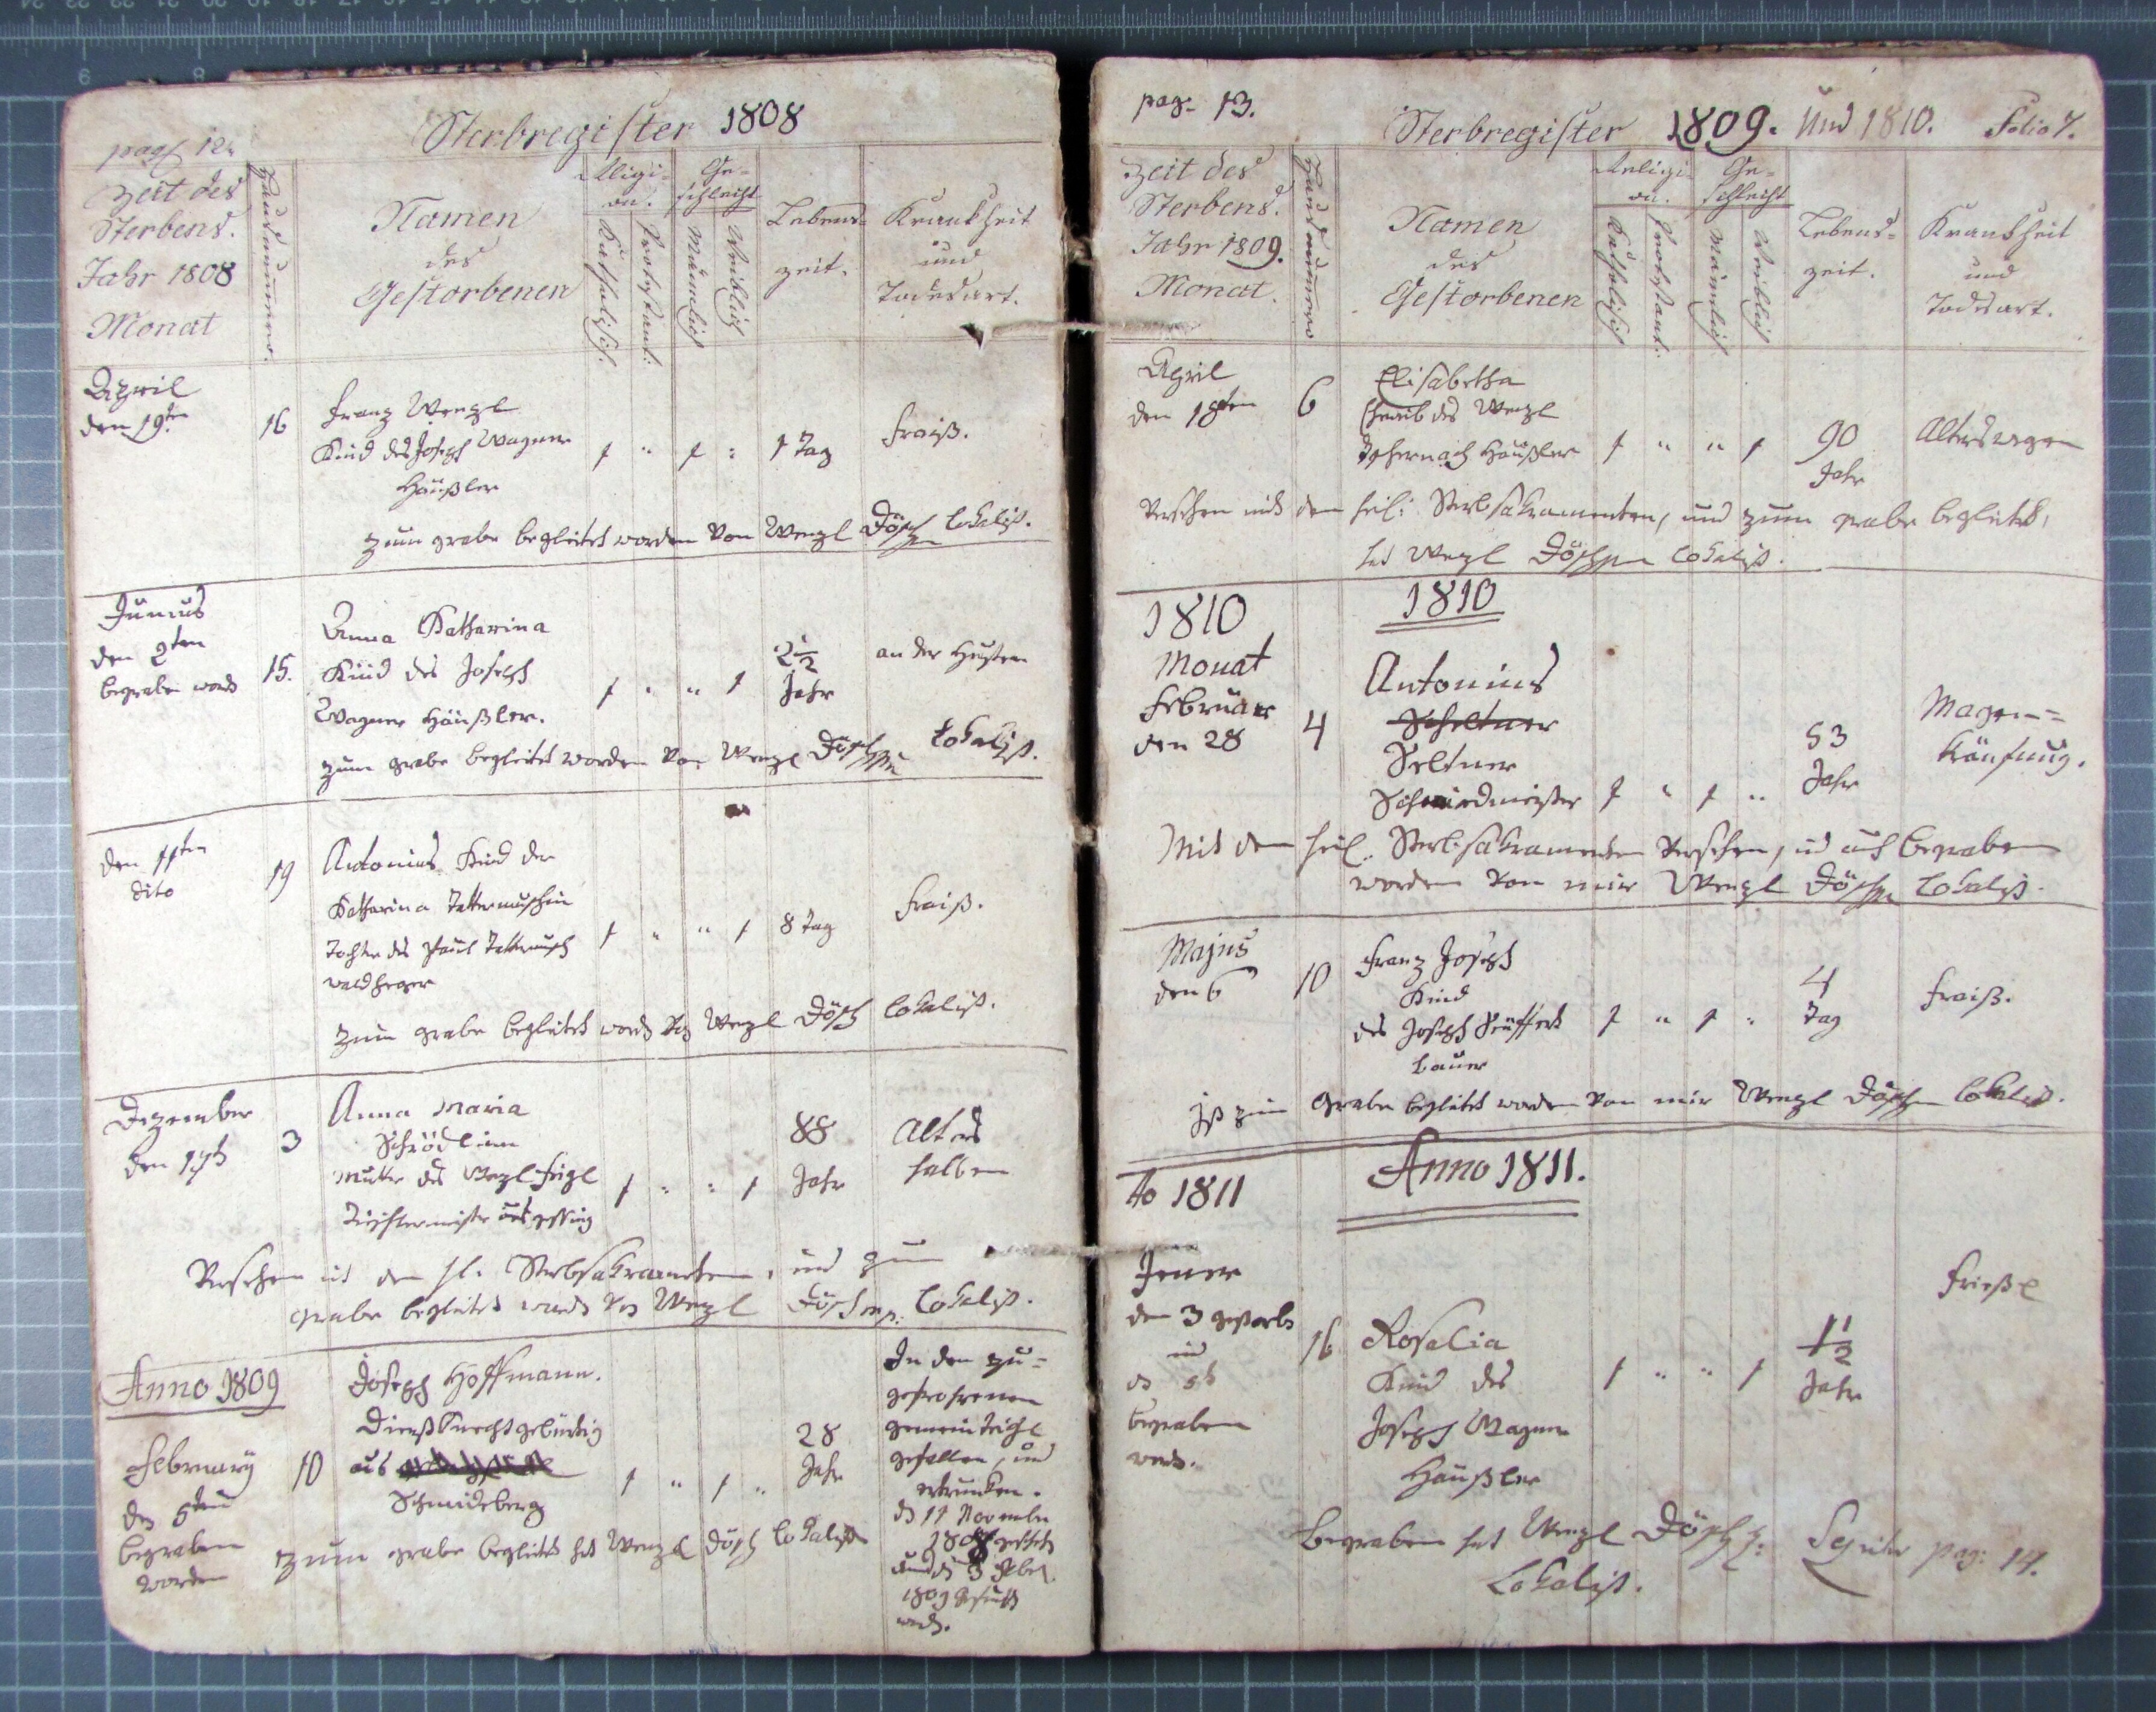 pag. 12.
Sterbregister 1808
Zeit des
Sterbens.
Jahr 1808
Monat
Hausnummero.
Namen
des
Gestorbenen
Religi-
on.
Katholisch.
Protestant.
Ge-
schlecht
Mänlich
Weiblich
Lebens-
zeit.
Krankheit
und
Todesart.
April
den 19ten
16
Franz Wenzl
Kind des Joseph Wagner
Häußler
1 " 1 "
1 Tag
Fraiß.
zum grabe begleitet worden von Wenzl Dösch Lokalist.
Junius
den 2ten
begraben word
15.
Anna Katharina
Kind des Joseph
Wagner Häußler.
1 " " 1
2 1/2
Jahr
an der Husten
zum grabe begleitet worden von Wenzl Lokalist.
den 11ten
dito
19
Antonius Kind der
Katharina
Tochter des Paul
waldheger
1 " " 1
8 Tag
Fraiß.
zum grabe begleitet word von Wenzl Dösch Lokalist.
Dezember
den
3
Anna Maria
Schrödlinn
Mutter des Wenzl
Tischlermeister aus
1 " " 1
88
Jahr
Alters
halben
Versehen mit den hl. Sterbsakramenten, und zum
grabe begleitet word von Wenzl Dösch mp. Lokalist.
Anno 1809
February
den 5ten
begraben
worden
10
Joseph Hoffmann.
Dienstknecht gebürtig
aus
Schmideberg
1 " 1 "
28
Jahr
In den zu-
gefrohrenen
gemein teicht
gefallen, und
ertrunken.
d 11 November
1808
und d 3 Feber
1809
word.
zum grabe begleitet hat Wenzl Dösch Lokalist
pag. 13.
Sterbregister 1809. und 1810.
Folio 7.
Zeit des
Sterbens.
Jahr 1809.
Monat.
Hausnummero
Namen
des
Gestorbenen
Religi-
on.
Katholisch
Protestant.
Ge-
schlecht
Mänlich
Weiblich
Lebens-
zeit.
Krankheit
und
Todesart.
April
den 18ten
6
Elisabetha
Eheweib des Wenzl
Häußler
1 " " 1
90
Jahr
Alterswegen
Versehen mit den heil: Sterbsakramenten, und zum grabe begleitet,
hat Wenzl Lokalist.
1810
1810
Monat
Februar
den 28
4
Antonius
Scheltner
Seltner
Schmiedmeister
1 " 1 "
53
Jahr
Magen=
Mit den heil. Sterbsakramenten versehen, und auch begraben
worden von mir Wenzl Lokalist.
Majus
den 6
10
Franz Joseph
Kind
des Joseph
Bauer
1 " 1 "
4
Tag
Fraiß.
Ist zum Grabe begleitet worden von mir Wenzl Lokalist.
Ao 1811
Anno 1811.
Jener
den 3 gestorb
und
d 5t
begraben
word.
16
Rosalia
Kind des
Joseph Wagner
Häußler
1 " " 1
1 1/2
Jahr
Frießl
Begraben hat Wenzl Dösch
Lokalist.
Sequitur pag: 14.